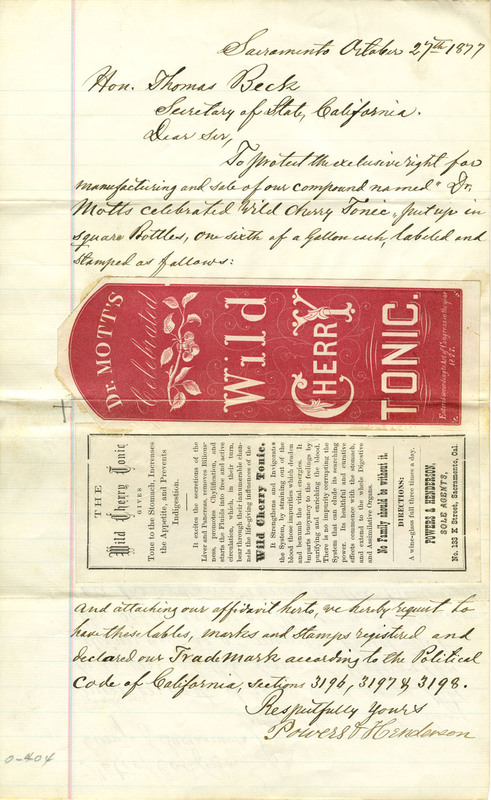 Sacramento October 27th 1877
Hon. Thomas Beck
Secretary of State, California.
Dear Sir,
To protect the exclusive right for
manufacturing and sale of our compound named "Dr.
Motts celebrated Wild Cherry Tonic, put up in
square Bottles, one sixth of a Gallon each, labeled and
stamped as follows:
DR. MOTT'S
Celebrated
Wild
CHERRY
TONIC.
Entered according to Act of Congress in the year
1877.
THE
Wild Cherry Tonic
GIVES
Tone to the Stomach, Increases
the Appetite, and Prevents
Indigestion.
It excites the secretions of the
Liver and Pancreas, removes Bilious-
ness, promotes Thyllification, and
starts the Fluids into free and active
circulation, which, in their turn,
bear through their innumerable chan-
nels the life-giving influences of the
Wild Cherry Tonic.
It Strengthens and Invigorates
the System, by straining out of the
blood those impurities which deaden
and benumb the vital energies. It
imparts buoyancy to the feelings by
purifying and enriching the blood.
There is no impurity corrupting the
System that can elude its searching
power. Its healthful and curative
effects commence with the stomach,
and extend to the whole Digestive
and Assimilative Organs.
No Family should be without it.
DIRECTIONS:
A wine-glass full three times a day.
POWERS & HENDERSON,
SOLE AGENTS,
No. 133 K Street, Sacramento, Cal.
and attaching our affidavit herto, we hereby request to
have these lables, marks and stamps registered and
declared our Trade Mark according to the Political
Code of California, sections 3196, 3197 & 3198.
Respectfully yours
Powers & Henderson
0-404